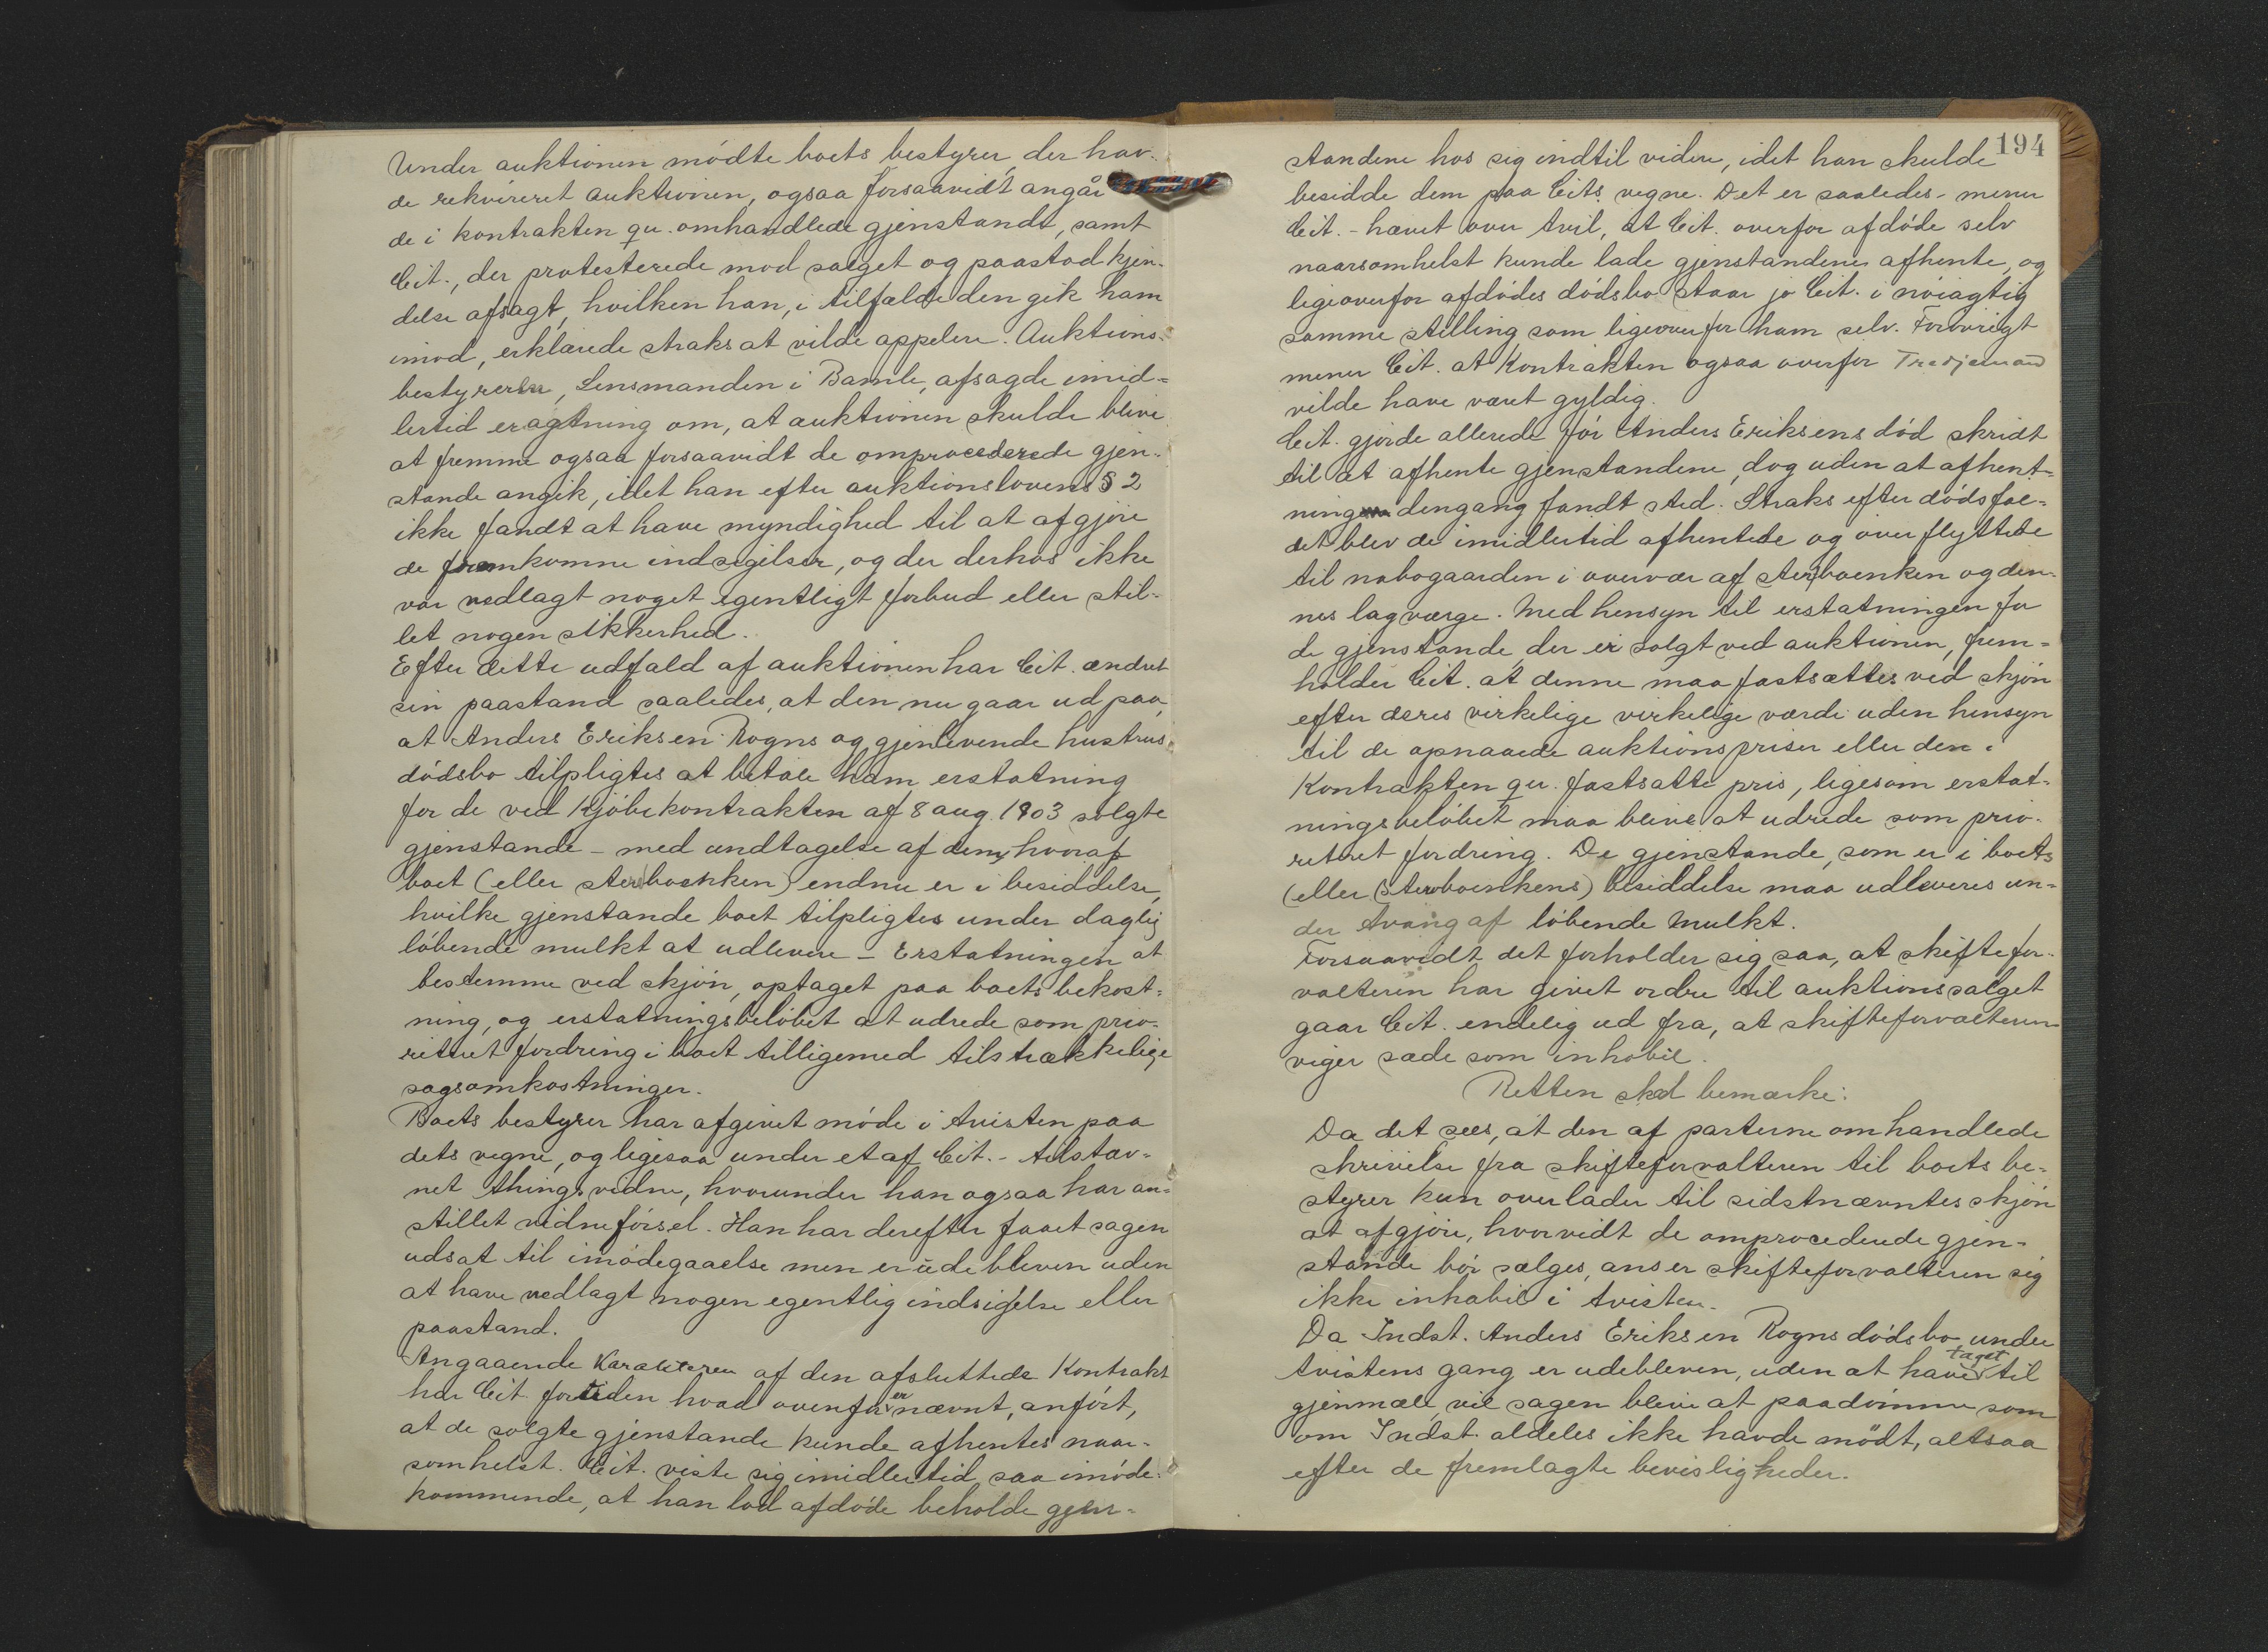 Under auktionen mödte boets bestyrer, der hav-
de rekvireret auktionen, ogsaa forsaavidt angår
de i kontrakten qu. omhandlede gjenstande, samt
Cit., der protesterede mod salget og paastod kjen-
delse afsagt, hvilken han, i tilfælde den gik ham
imod, erklærede straks at vilde appelere. Auktions-
bestyreren, Lensmanden i Bamle, afsagde imid-
lertid eragtning om, at auktionen skulde blive
at fremme ogsaa forsaavidt de omprocederede gjen-
stande angik, idet han efter auktionslovens § 2
ikke fandt at have myndighed til at afgjöre
de fremkomne indsigelser, og der derhos ikke
var nedlagt noget egentligt forbud eller stil-
let nogen sikkerhed.
Efter dette udfald af auktionen har Cit. ændret
sin paastand saaledes, at den nu gaar ud paa,
at Anders Eriksen Rogns og gjenlevende hustrus
dödsbo tilpligtes at betale ham erstatning
for de ved Kjöbekontrakten af 8 aug. 1903 solgte
gjenstande – med undtagelse af dem, hvoraf
boet (eller sterboenken) endnu er i besiddelse,
hvilke gjenstande boet tilpligtes under daglig
löbende mulkt at udlevere – Erstatningen at
bestemme ved skjön, optaget paa boets bekost-
ning, og erstatningsbelöbet at udrede som prio-
riteret fordring i boet tilligemed tilstrækkelige
sagsomkostninger.
Boets bestyrer har afgivet möde i tvisten paa
dets vegne, og ligesaa under et af Cit. - tilstav-
net thingsvidne, hvorunder han ogsaa har an-
stillet vidneförsel. Han har derefter faaet sagen
udsat til imödegaaelse men er udebleven uden
at have nedlagt nogen egentlig indsigelse eller
paastand.
Angaaende Karakteren af den afsluttede Kontrakt
har Cit. foruden hvad ovenfor er nævnt, anfört,
at de solgte gjenstande kunde afhentes naar-
somhelst. Cit. viste sig imidlertid saa imöde-
kommende, at han lod afdöde beholde gjen-
194
standene hos sig indtil videre, idet han skulde
besidde dem paa Cits. vegne. Det er saaledes - mener
Cit. - hævet over tvil, at Cit. overfor afdöde selv
naarsomhelst kunde lade gjenstandene afhente, og
ligeoverfor afdödes dödsbo staar jo Cit. i nöiagtig
samme stilling som ligeoverfor ham selv. Forövrigt
mener Cit. at Kontrakten ogsaa overfor Tredjemand
vilde have været gyldig.
Cit. gjorde allerede för Anders Eriksens död skridt
til at afhente gjenstandene, dog uden at afhent-
ning dengang fandt sted. Straks efter dödsfal-
det blev de imidlertid afhentede og overflyttede
til nabogaarden i overvær af sterboenken og den-
nes lagværge. Med hensyn til erstatningen for
de gjenstande, der er solgt ved auktionen, frem-
holder Cit. at denne maa fastsættes ved skjön
efter deres virkelige virkelige værdi uden hensyn
til de opnaaede auktionspriser eller den i
Kontrakten qu. fastsatte pris, ligesom erstat-
ningsbelöbet maa blive at udrede som prio-
riteret fordring. De gjenstande, som er i boets
(eller sterboenkens) besiddelse maa udleveres un-
der tvang af löbende mulkt.
Forsaavidt det forholder sig saa, at skiftefor-
valteren har givet ordre til auktionssalget
gaar Cit. endelig ud fra, at skifteforvalteren
viger sæde som inhabil.
Retten skal bemærke:
Da det sees, at den af parterne omhandlede
skrivelse fra skifteforvalteren til boets be-
styrer kun overlader til sidstnævntes skjön
at afgjöre, hvorvidt de omprocederede gjen-
stande bör sælges, anser skifteforvalteren sig
ikke inhabil i tvisten.
Da Indst. Anders Eriksen Rogns dödsbo under
tvistens gang er udebleven, uden at have taget til
gjenmæle, vil sagen blive at paadömme som
om Indst. aldeles ikke havde mödt, altsaa
efter de fremlagte bevisligheder.